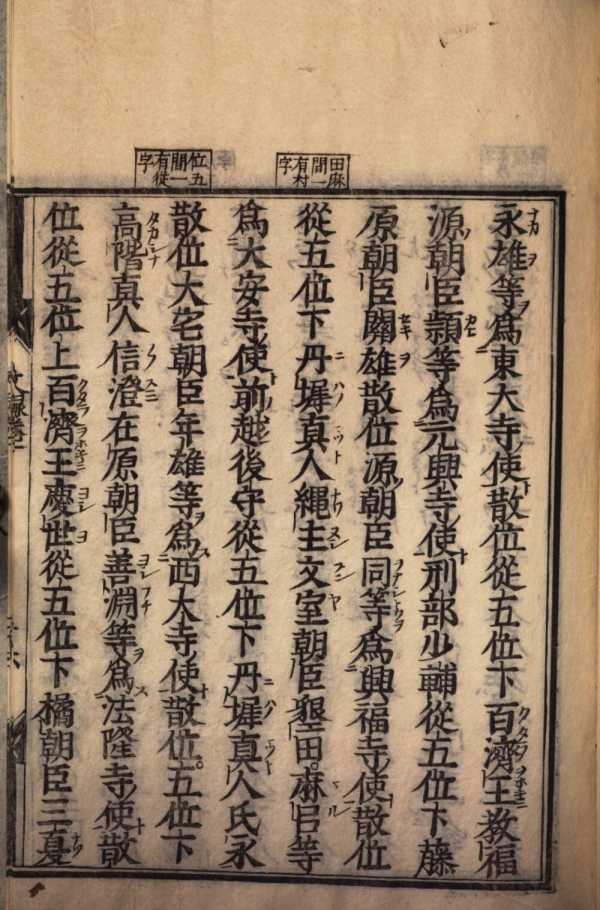 永雄等為東大寺使散位從五位下百濟王教福
源朝臣頴等為元興寺使刑部少輔從五位下藤
原朝臣關雄散位源朝臣同等為興福寺使散位
從五位下丹墀真人縄主文室朝臣墾田麻呂等
為大安寺使前越後守從五位下丹墀真人氏永
散位大宅朝臣年雄等為西大寺使散位五位下
高階真人信澄在原朝臣善淵等為法隆寺使散
位從五位上百濟王慶世從五位下橘朝臣三夏
田麻間一有村字
位五間一有從字